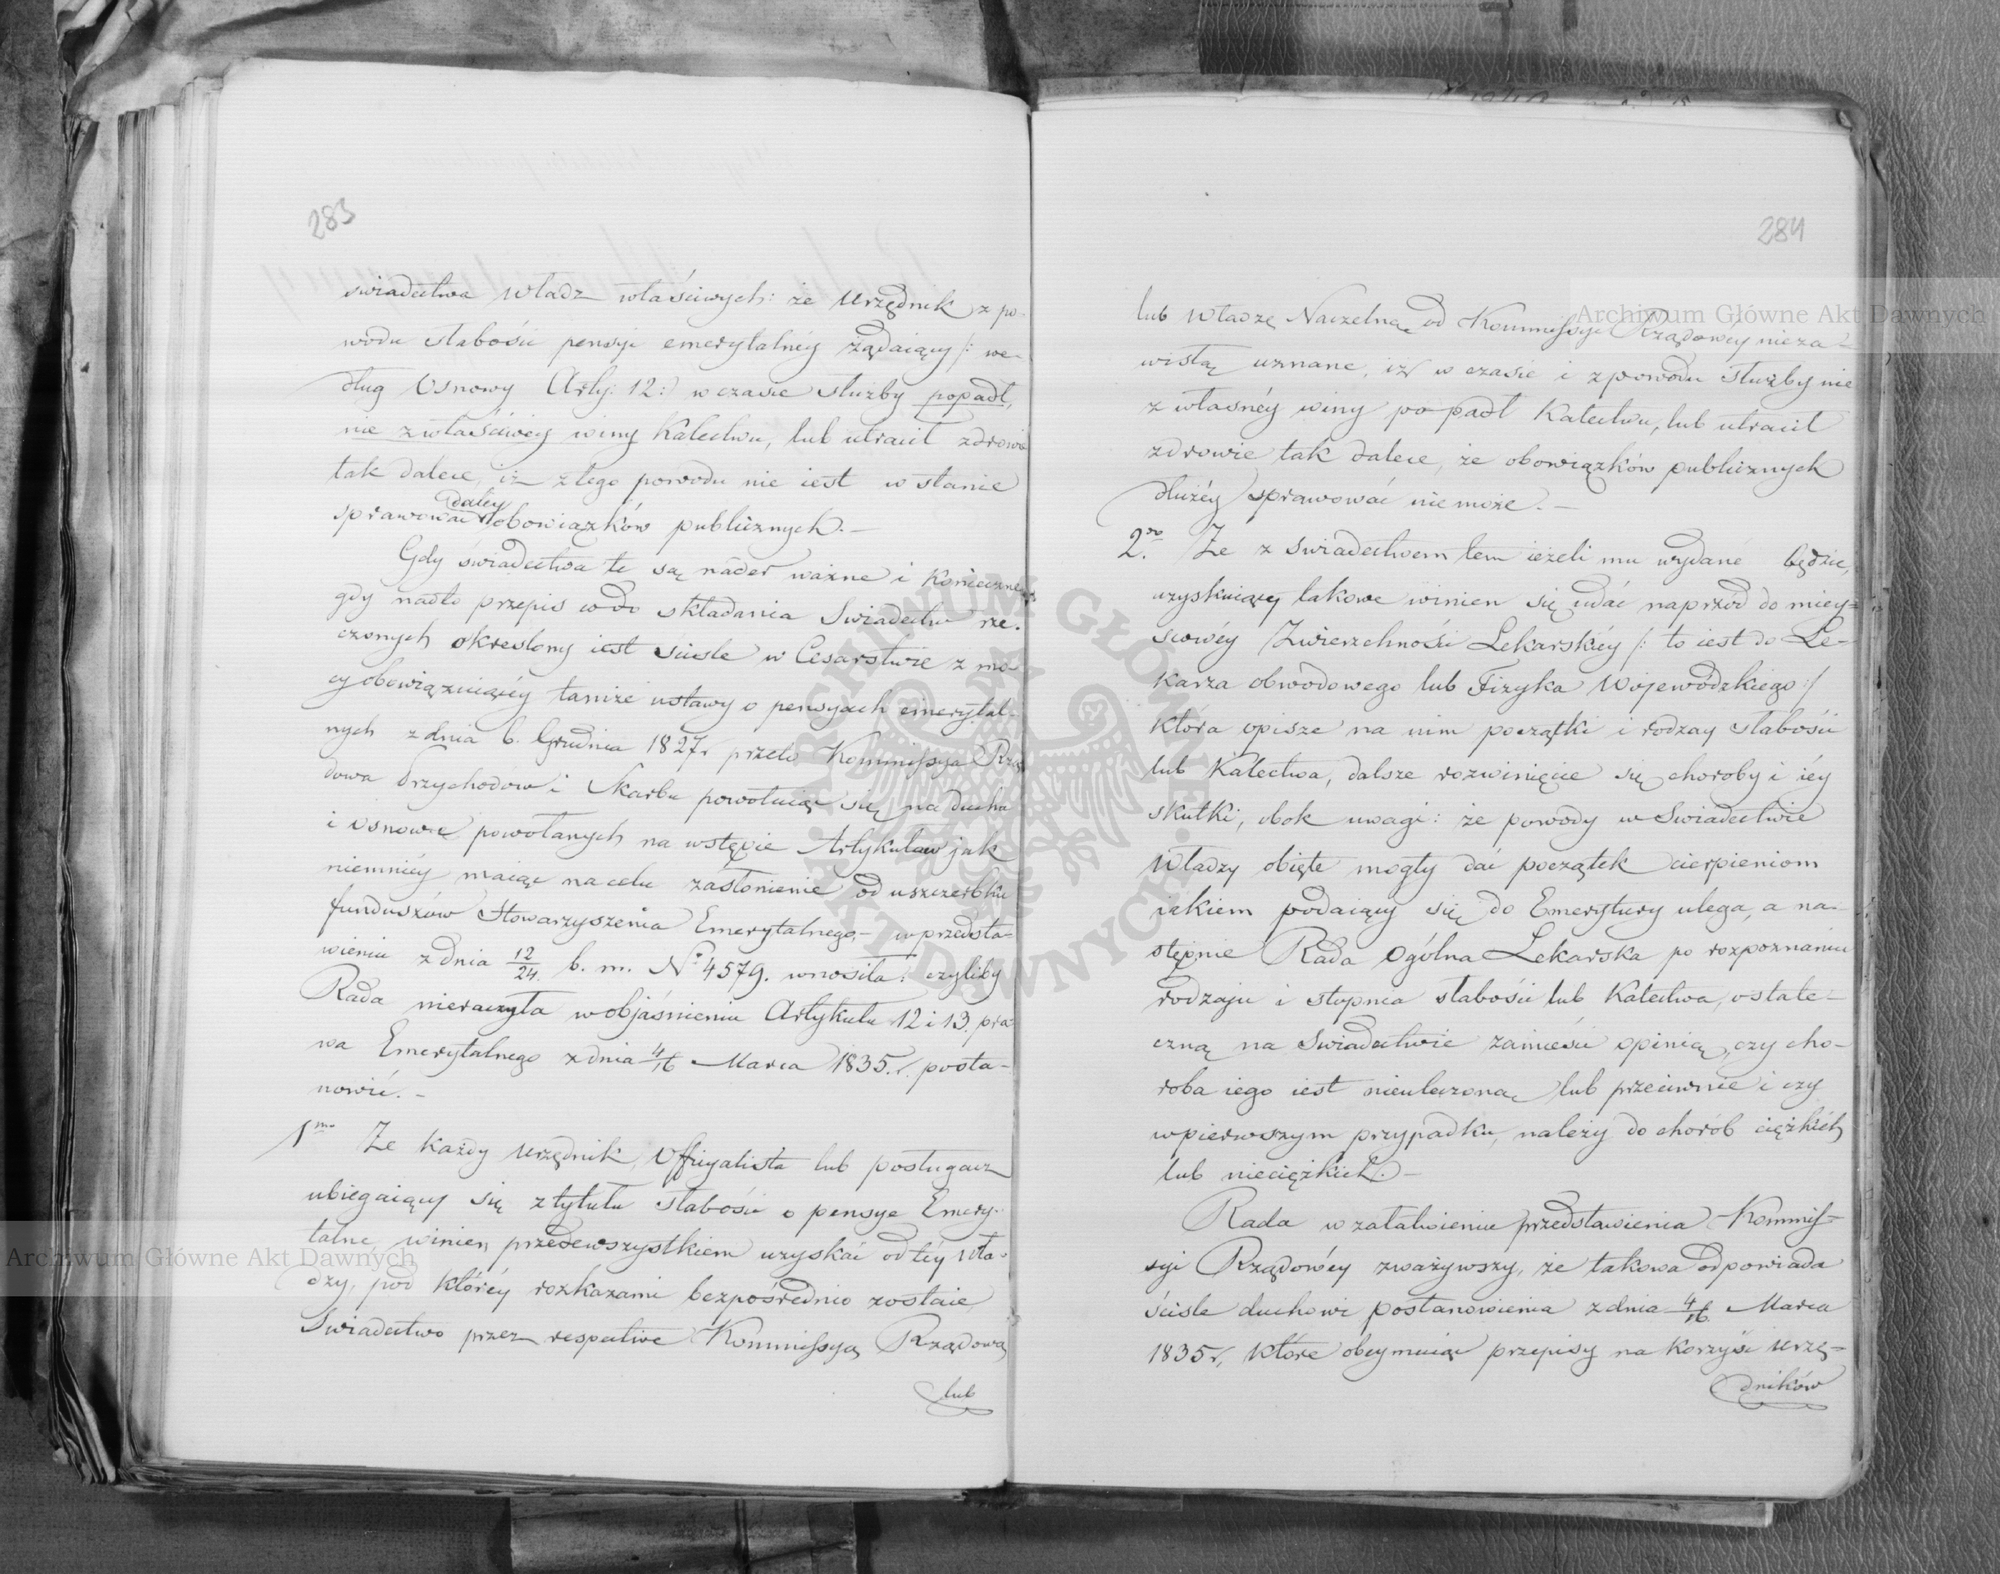 283
swiadectwa Władz właściwych: że Urzędnik z po-
wodu słabości pensyi emerytalnéy żądaiący /: we-
dług Osnowy Arty: 12:/ w czasie służby popadł,
nie z właściwéy winy kalectwu, lub utracił zdrowie
tak dalece, iż z tego powodu nie iest w stanie
daléy
sprawować obowiązków publicznych.—
Gdy świadectwa te są nader ważne i konieczne,
gdy nadto przepis co do składania Swiadectw rze-
czonych określony iest ściśle w Cesarstwie z mo-
cy obowiązuiącéy tamże ustawy o pensyach emerytal-
nych z dnia 6. Grudnia 1827 r. przeto Kommissya Rzą-
dowa Przychodow i Skarbu powołuiąc się na ducha
i osnowę powołanych na wstępie Artykułow jak
niemniéy maiąc na celu zasłonienie od uszczerbku
funduszów Stowarzyszenia Emerytalnego,— w przedsta-
wieniu z dnia 12/24. b. m. No 4579. wnosiła: czyliby
Rada nieraczyła w objaśnieniu Artykułu 12 i 13. pra-
wa Emerytalnego z dnia 4/16 Marca 1835. r. posta-
nowić.—
1mo Ze każdy Urzędnik, Officyalista lub posługacz
ubiegaiący się z tytułu słabości o pensye Emery-
talne, winien przedewszystkiem uzyskać od téy Wła-
dzy, pod któréy rozkazami bezpośrednio zostaie,
Swiadectwo przez respective Kommissyą Rządową
lub
284
lub Władzę Naczelną od Kommissyi Rządowéy nieza-
wisłą uznane, iż w czasie i z powodu służby nie
z własnéy winy popadł kalectwu, lub utracił
zdrowie tak dalece, że obowiązków publicznych
dłużéy sprawować nie może.—
2do Ze z swiadectwem tem ieżeli mu wydane będzie,
uzyskuiący takowe winien się udać naprzód do miey-
scowéy Zwierzchności Lekarskiéy /: to iest do Le-
karza obwodowego lub Fizyka Wojewodzkiego :/
która opisze na nim początki i rodzay słabości
lub kalectwa, dalsze rozwinięcie się choroby i iéy
skutki, obok uwagi: że powody w Swiadectwie
Władzy obięte mogły dać początek cierpieniom
iakiem podaiący się do Emerytury ulega, a na-
stępnie Rada Ogólna Lekarska po rozpoznaniu
rodzaju i stopnia słabości lub kalectwa, ostate-
czną na Swiadectwie zamieści opinią, czy cho-
roba iego iest nieuleczoną lub przeciwnie i czy
w pierwszym przypadku, należy do chorób ciężkich
lub nieciężkich.—
Rada w załatwieniu przedstawienia Kommis-
syi Rządowéy zważywszy, że takowa odpowiada
ściśle duchowi postanowienia z dnia 4/16 Marca
1835 r., które obeymuiąc przepisy na korzyść Urzę-
dników
Archiwum Główne Akt Dawnych
Archiwum Główne Akt Dawnych
ARCHIWUM GŁÓWNE AKT DAWNYCH